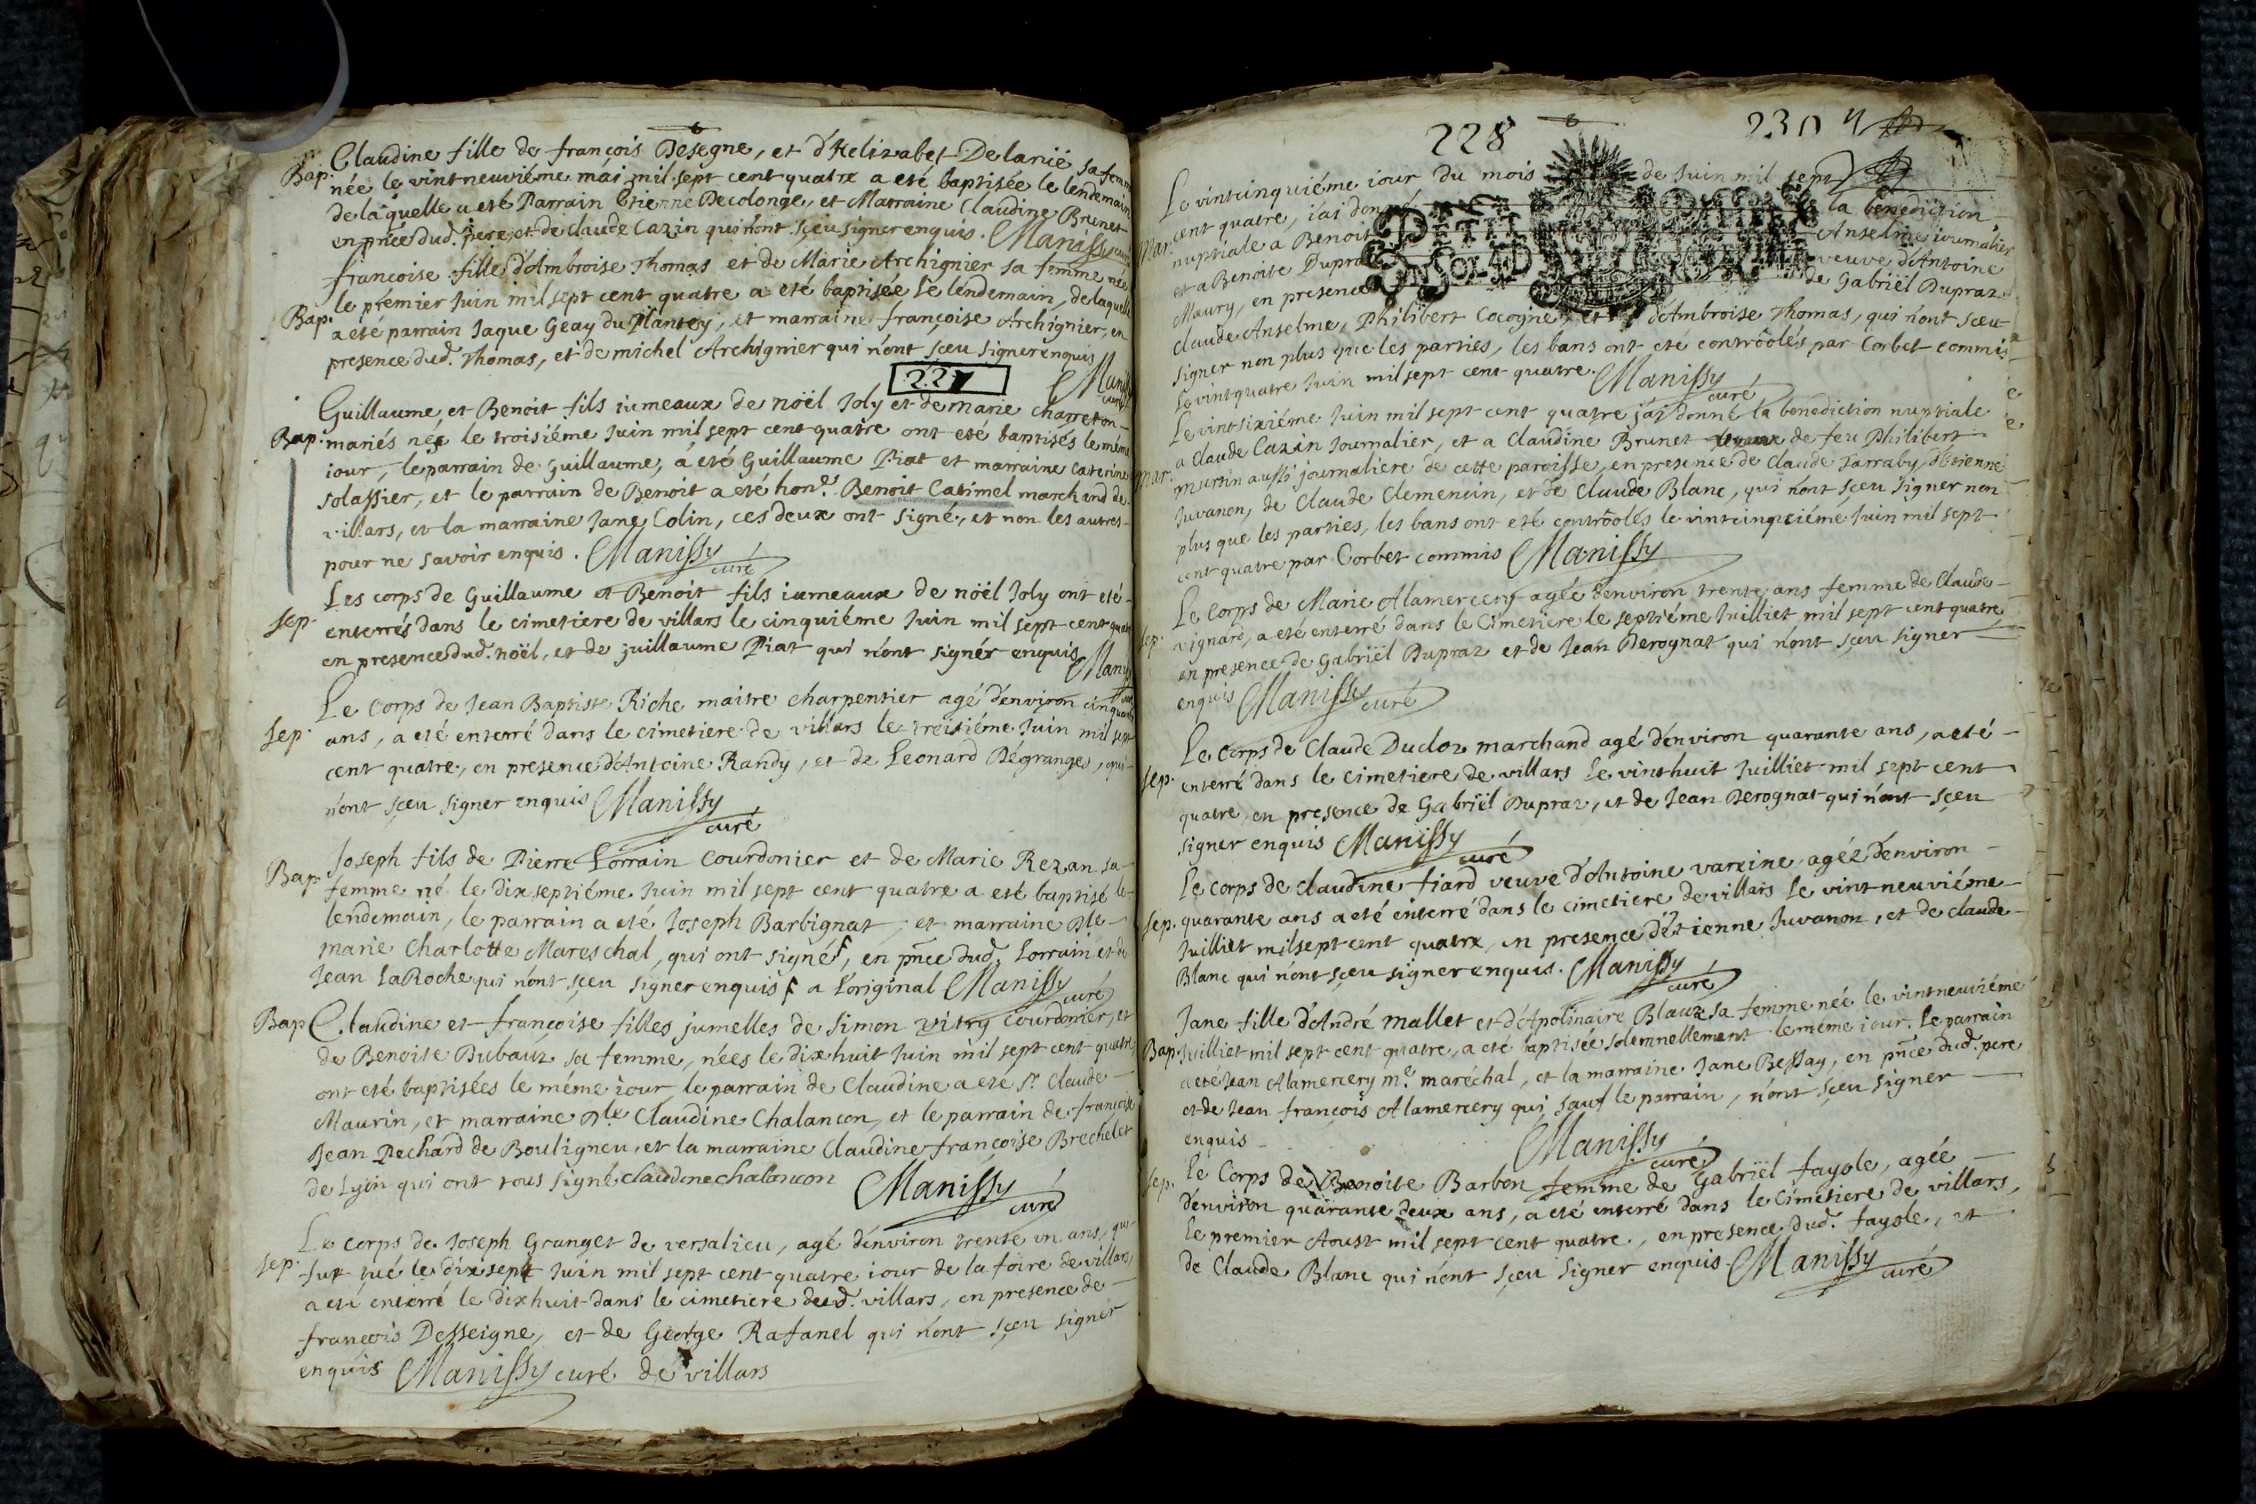 Bap. Claudine fille de françois Desegne, et d'Helizabet Delanié sa femme
née le vintneuviéme mai mil sept cent quatre a eté baptisée le lendemain
de laquelle a eté Parrain Etienne Decolonge, et Marraine Claudine Brunet
en pñce dud. pere, et de Claude Cazin qui n'ont sçeu signer enquis. Manissy curé
françoise fille d'Ambroise Thomas et de Marie Archignier sa femme née
Bap. le premier Juin mil sept cent quatre a eté baptisée le lendemain, de laquelle
a eté parrain Jaque Geay du Plantey, et marraine françoise Archignier, en
presence dud. Thomas, et de michel Archignier qui n'ont sçeu signer enquis
227 Manissy curé
Guillaume et Benoit fils iumeaux de noël Joly et de marie charreton
Bap. mariés nés le troisiéme Juin mil sept cent quatre ont eté baptisés le méme
iour, le parrain de Guillaume, a eté Guillaume Piat et marraine Caterine
solassier, et le parrain de Benoit a eté hon.e Benoit Catimel marchand de
villars, et la marraine Jane Colin, ces deux ont signé, et non les autres
pour ne savoir enquis. Manissy curé
Les corps de Guillaume et Benoit fils iumeaux de noël Joly ont eté
sep. enterrés dans le cimetiere de villars le cinquiéme Juin mil sept cent quatre
en presence dud. noël, et de guillaume Piat qui n'ont signér enquis Manissy
Le corps de Jean Baptiste Riche maitre charpentier agé d'environ cinquante
sep. ans, a eté enterré dans le cimetiere de villars le treisiéme Juin mil sept
cent quatre, en presence d'Antoine Randy, et de Leonard Dégranges, qui
n'ont sçeu signer enquis Manissy curé
Joseph fils de Pierre Lorrain Courdonier et de Marie Rezan sa
Bap. femme né le dixseptiéme Juin mil sept cent quatre a eté baptisé le
lendemain, le parrain a eté Joseph Barbignat, et marraine Dle
marie Charlotte Mareschal, qui ont signé, en pñce dud. Lorrain et de
Jean LaRoche qui n'ont sçeu signer enquis a l'original Manissy curé
Bap Claudine et françoise filles jumelles de Simon vitry courdonier, et
de Benoite Dubauz sa femme, nées le dixhuit Juin mil sept cent quatre
ont eté baptisées le méme iour le parrain de Claudine a eté Sr. Claude
Maurin, et marraine Dle Claudine Chalancon, et le parrain de françoise
Jean Pechard de Bouligneu, et la marraine Claudine françoise Brechelet
de Lyon qui ont tous signé claudine chaloncon Manissy curé
Le corps de Joseph Granget de versalieu, agé d'environ trente un ans, qui
sep. fut tué le dixsept Juin mil sept cent quatre iour de la foire de villars,
a eté enterré le dixhuit dans le cimetiere dud. villars, en presence de
françois Desseigne, et de George Rafanel qui n'ont sçeu signer
enquis Manissy curé de villars
228 230
Le vintcinquiéme iour du mois de Juin mil sept
cent quatre, i'ai donné la benediction
Mar. nuptiale a Benoit Anselme, iournalier
et a Benoite Dupraz veuve d'Antoine
Maury, en presence de Gabriël Dupraz
Claude Anselme, Philibert Cocogne, et d'Ambroise Thomas, qui n'ont sceu
signer non plus que les parties, les bans ont eté contrôolés par Corbet commis
Le vintquatre Juin mil sept cent quatre. Manissy curé
Le vintsixiéme Juin mil sept cent quatre j'ai donné la benediction nuptiale
a Claude Cazin Journalier, et a Claudine Brunet de feu Philibert
Mar. murtin aussi journaliere de cette paroisse, en presence de Claude Tarraby, d'Etienne
Juvanon, de Claude Clemencin, et de Claude Blanc, qui n'ont sçeu signer non
plus que les parties, les bans ont eté contrôolés le vintcinquiéme Juin mil sept
cent quatre par Corbet commis Manissy
Le corps de Marie Alamercery agée d'environ trente ans femme de Claude
sep. vignard, a eté enterré dans le Cimetiere le septiéme Juilliet mil sept cent quatre
en presence de Gabriël Dupraz et de Jean Derognat qui n'ont sçeu signer
enquis Manissy curé
Le corps de Claude Ducloz marchand agé d'environ quarante ans, a eté
sep. enterré dans le cimetiere de villars le vinthuit Juilliet mil sept cent
quatre, en presence de Gabriël Dupraz, et de Jean Derognat qui n'ont sçeu
signer enquis Manissy curé
Le corps de claudine fiard veuve d'Antoine vareine agéz d'environ
sep. quarante ans a eté enterré dans le cimetiere de villars le vintneuviéme
Juilliet mil sept cent quatre, en presence d'étienne Juvanon, et de claude
Blanc qui n'ont sçeu signer enquis. Manissy curé
Jane fille d'André Mallet et d'Apolinaire Blauz sa femme née le vintneuviémé
Bap. Juilliet mil sept cent quatre, a eté baptisée solemnellement le méme iour. Le parrain
a eté Jean Alamercery m.e maréchal, et la marraine Jane Bessay, en pñce dud. pere
et de Jean françois Alamercery qui, sauf le parrain, n'ont sçeu signer
enquis Manissy curé
sep. Le Corps de Benoite Barbon femme de Gabriël fayole, agée
d'environ quarante deux ans, a eté enterré dans le Cimetiere de villars,
Le premier Aoust mil sept cent quatre, en presence dud. fayole, et
de Claude Blanc qui n'ont sçeu signer enquis Manissy curé